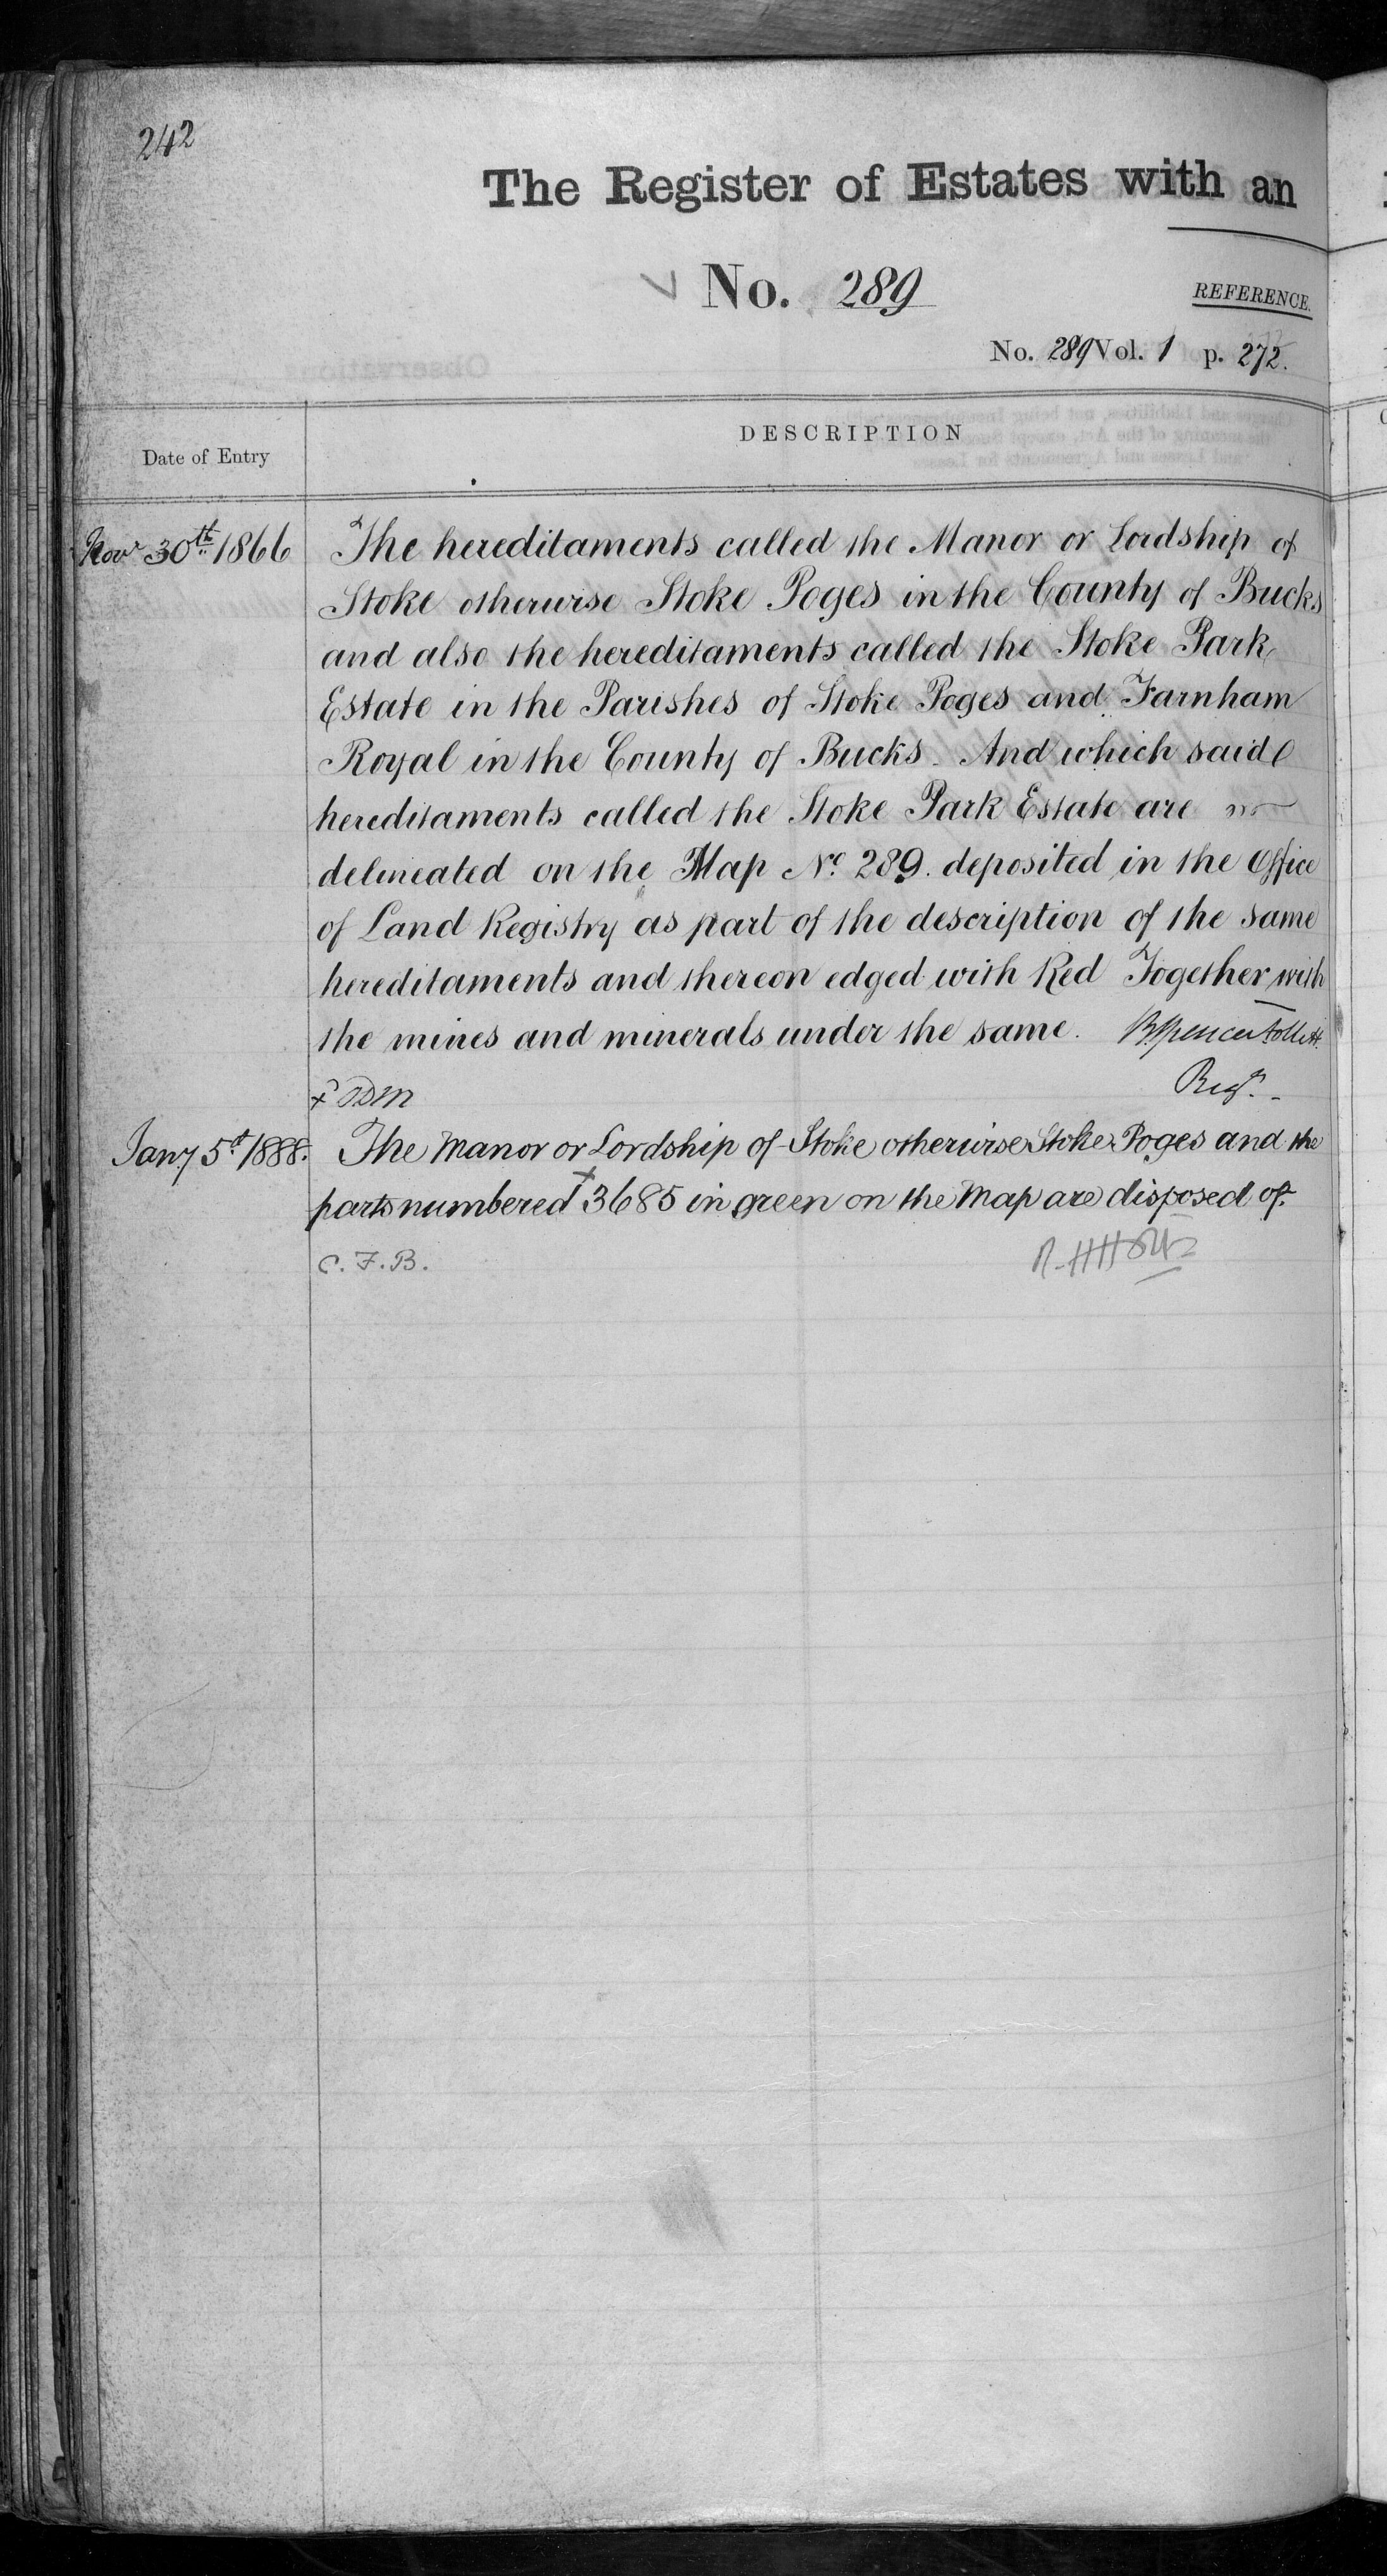 242
The Register of Estates with an
No. 289
REFERENCE.
No. 289 Vol. 1 p. 272.
Date of Entry
DESCRIPTION
Novr 30th 1866
The hereditaments called the Manor or Lordship of
Stoke otherwise Stoke Poges in the County of Bucks
and also the hereditaments called the Stoke Park
Estate in the Parishes of Stoke Poges and Farnham
Royal in the County of Bucks. And which said
hereditaments called the Stoke Park Estate are
delineated on the Map No. 289. deposited in the Office
of Land Registry as part of the description of the same
hereditaments and thereon edged with Red Together with
the mines and minerals under the same. B. Spencer Follett
Regr.
Jany 5th 1888. The Manor or Lordship of Stoke otherwise Stoke Poges and the
parts numbered + 3685 in green on the Map are disposed of.
C. F. B.